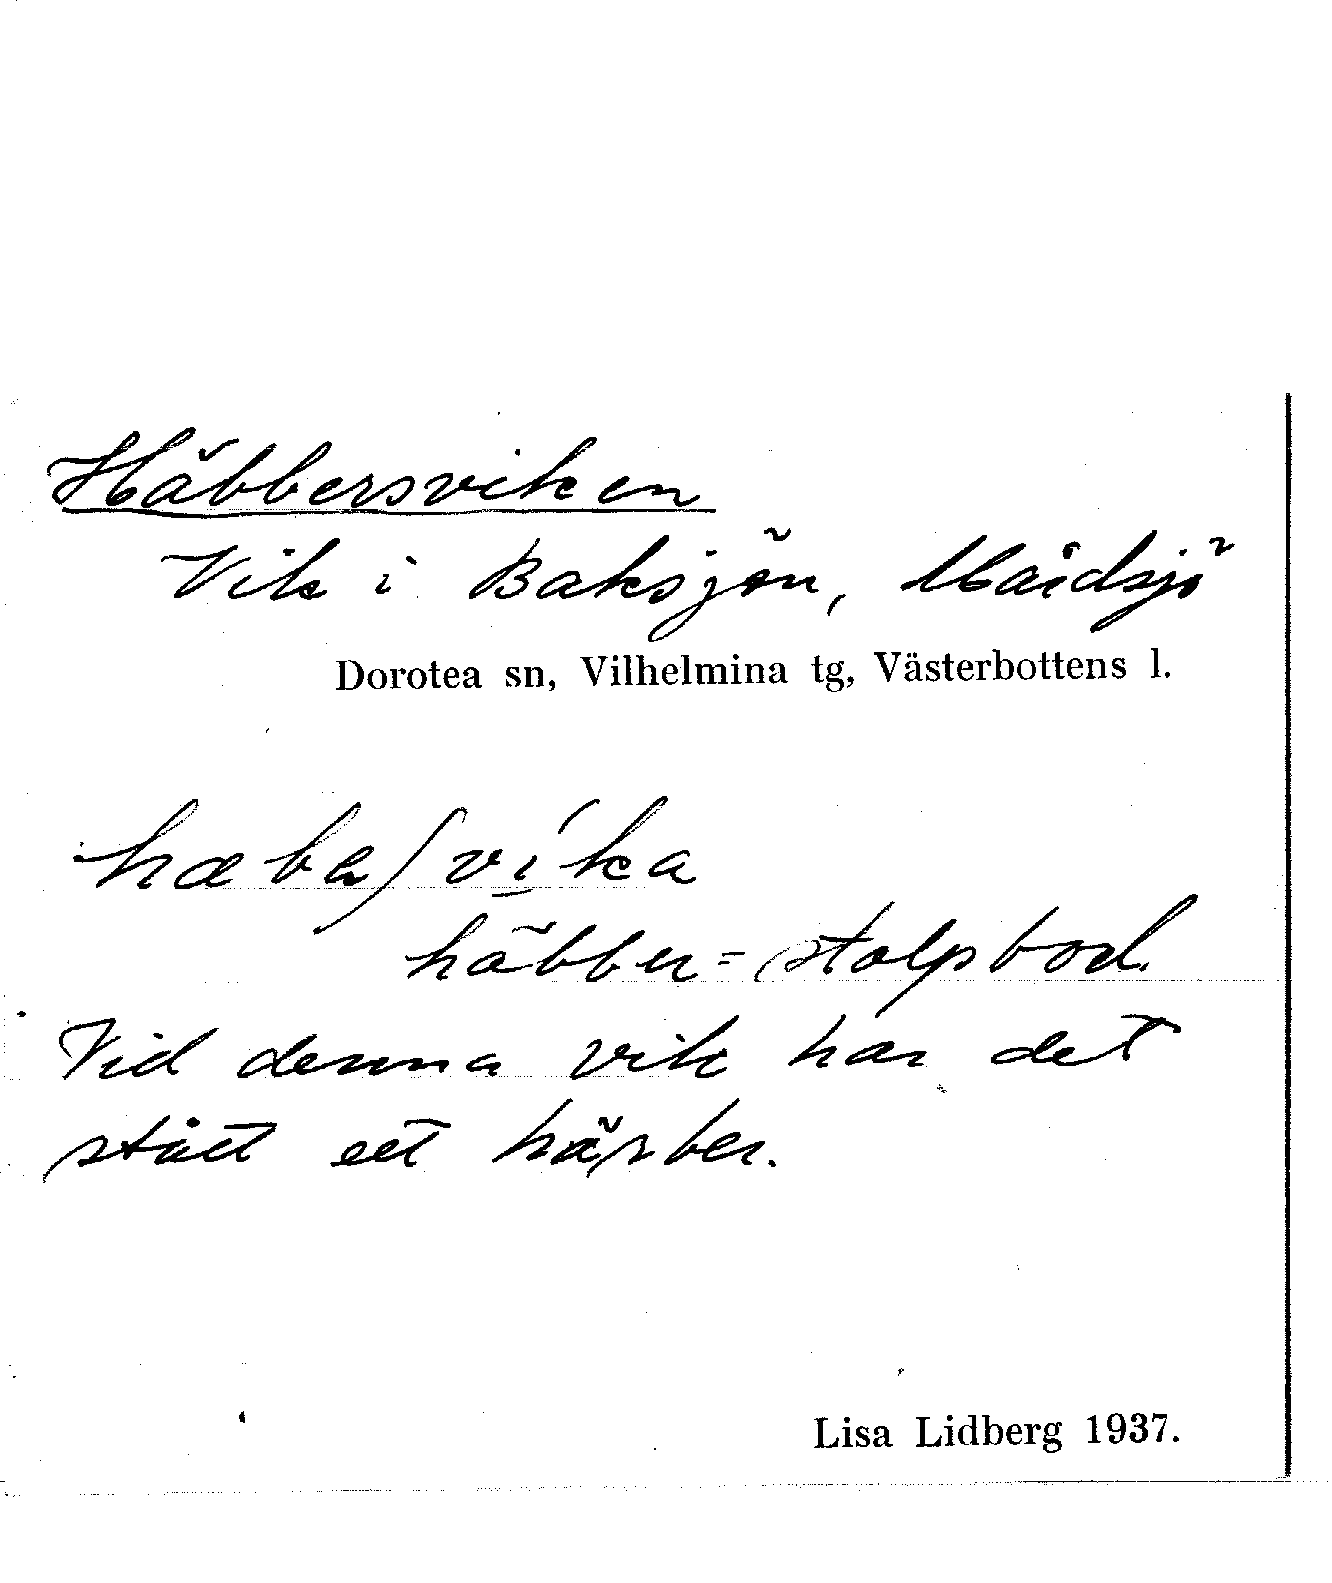 Häbbersviken
Vik i Baksjön, Måidsjö
Dorotea sn, Vilhelmina tg, Västerbottens l.
hæbaʃvíka
häbber = stolpbod.
Vid denna vik har det
stått ett härber.
Lisa Lidberg 1937.